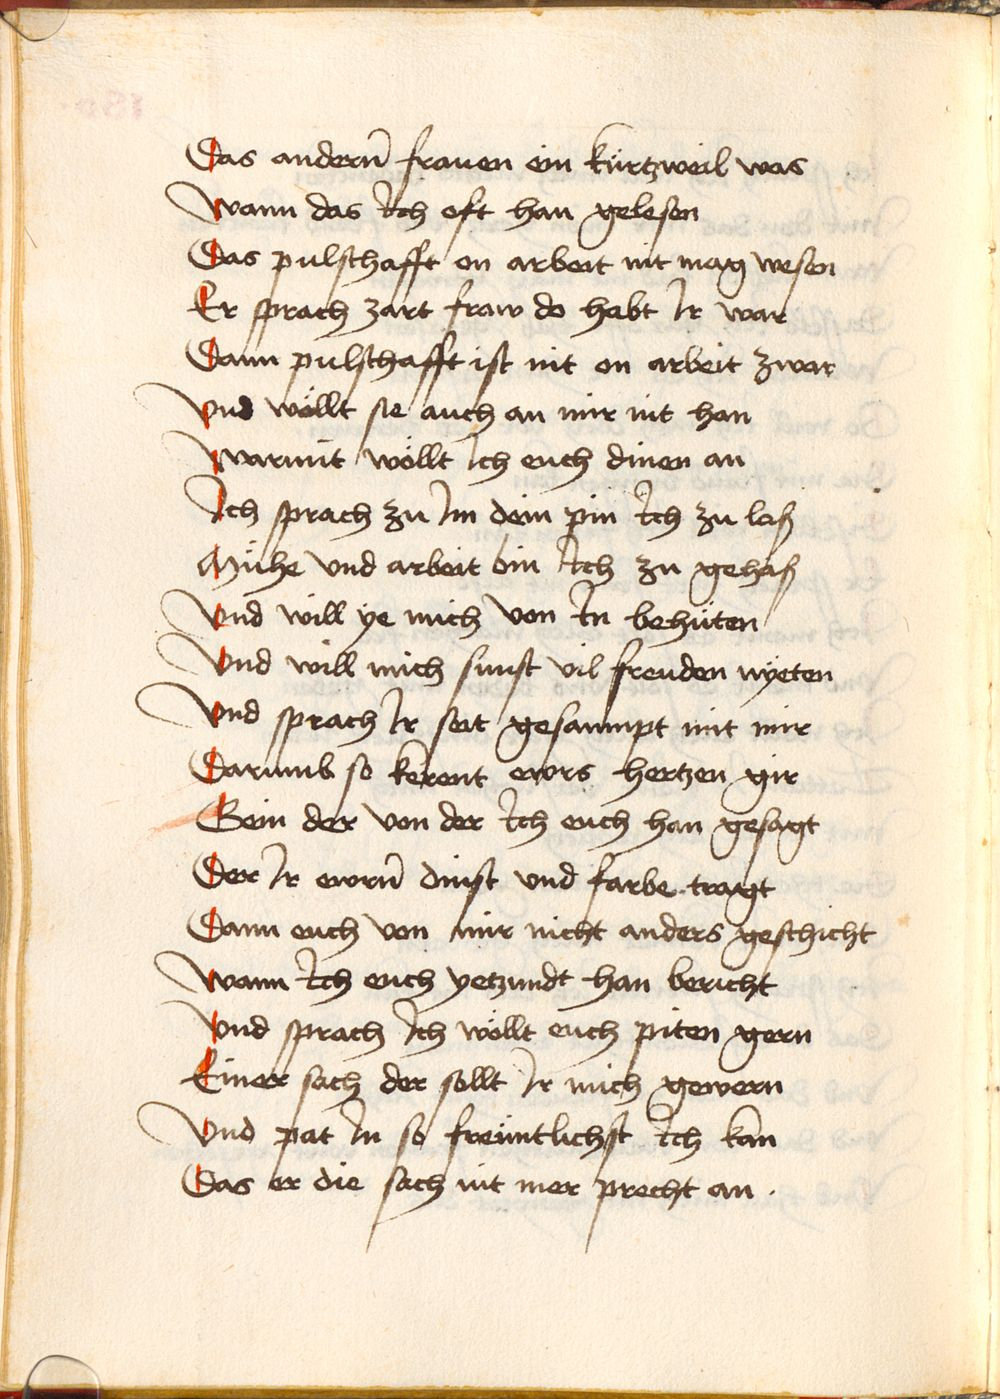 Das andern̄ frauen ein kürtzweil was
Wann das Ich oft han gelesen
Das pulschafft on arbeit nit mag wesen
Er sprach zart fraw do habt Ir war
Dann pulschafft ist nit on arbeit zwar
Vnd wöllt sie auch an mir nit han
Warmit wöllt Ich euch dinen an
Ich sprach zu Im dein pin Ich zu laß
Mühe vnd arbeit bin Ich zu gehaß
Vnd will ye mich von In behüten
Vnd will mich sunst vil freuden nyeten
Vnd sprach Ir seit gesaumpt mit mir
Darumb so kerent ewrs hertzen gir
Gein der von der Ich euch han gesagt
Der Ir ewrn̄ dinst vnd farbe tragt
Dann euch von mir nicht anders geschicht
Wann Ich euch yetzundt han bericht
Vnd sprach Ich wöllt euch piten gern
Einer sach der sollt Ir mich gewern
Vnd pat In so freüntlichst Ich kan
Das er die sach nit mer precht an .